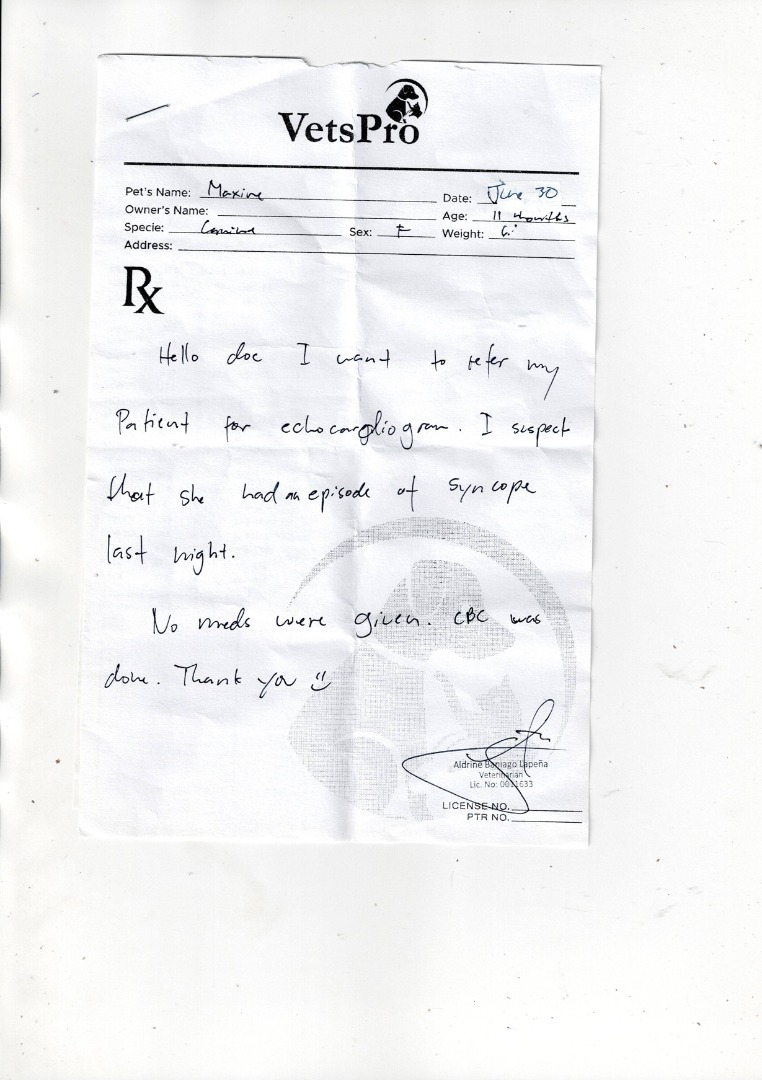 VetsPro
Pet's Name: Maxine Date: June 30
Owner's Name: Age: 11 months
Specie: Canine Sex: F Weight:
Address:
Rx
Hello doc I want to refer my
Patient for echocardiogram. I suspect
that she had an episode of syncope
last night.
No meds were given. CBC was
done. Thank you
Aldrine Baniago Lapeña
Veterinarian
Lic. No:
LICENSE NO.
PTR NO.